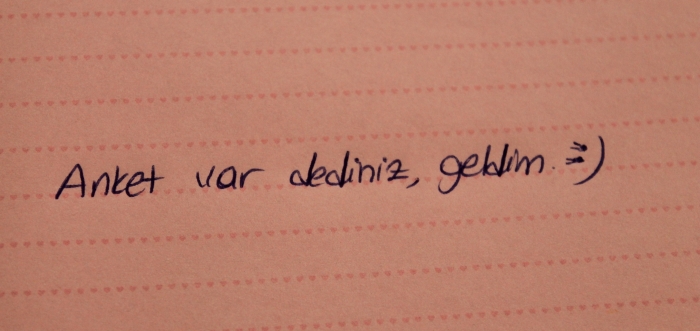 Anket var dediniz, geldim. =)